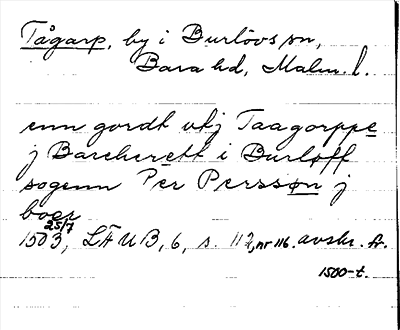 Tågarp, by i Burlövs sn,
Bara hd, Malm. l.
enn gordt utj Taagorppe
j Bareherett i Burløff
sogenn Per Perssøn j
boer
1503 25/7, LÄUB, 6, s. 112, nr 116. avskr. fr.
1500-t.